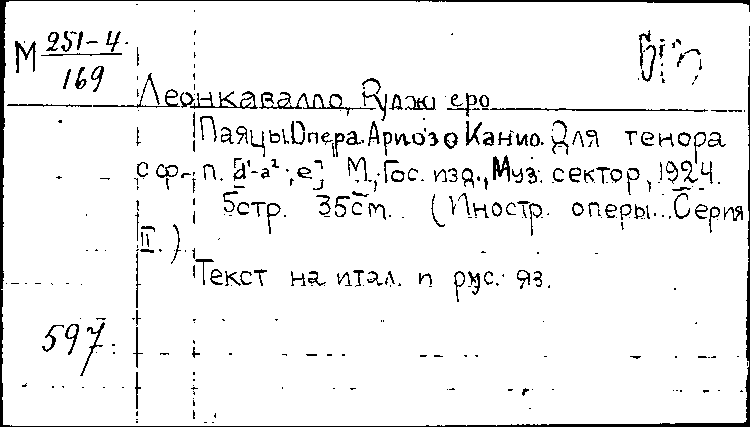 М 251-4
169
Леонкавалло, Руджиеро
Паяцы. Опера. Ариозо Канио. Для тенора
с ф.-п. [d¹-a²; e] М., Гос. изд., Муз. сектор, 1924.
5стр. 35см. (Иностр. оперы. Серия
II.)
Текст на итал. и рус. яз.
597.